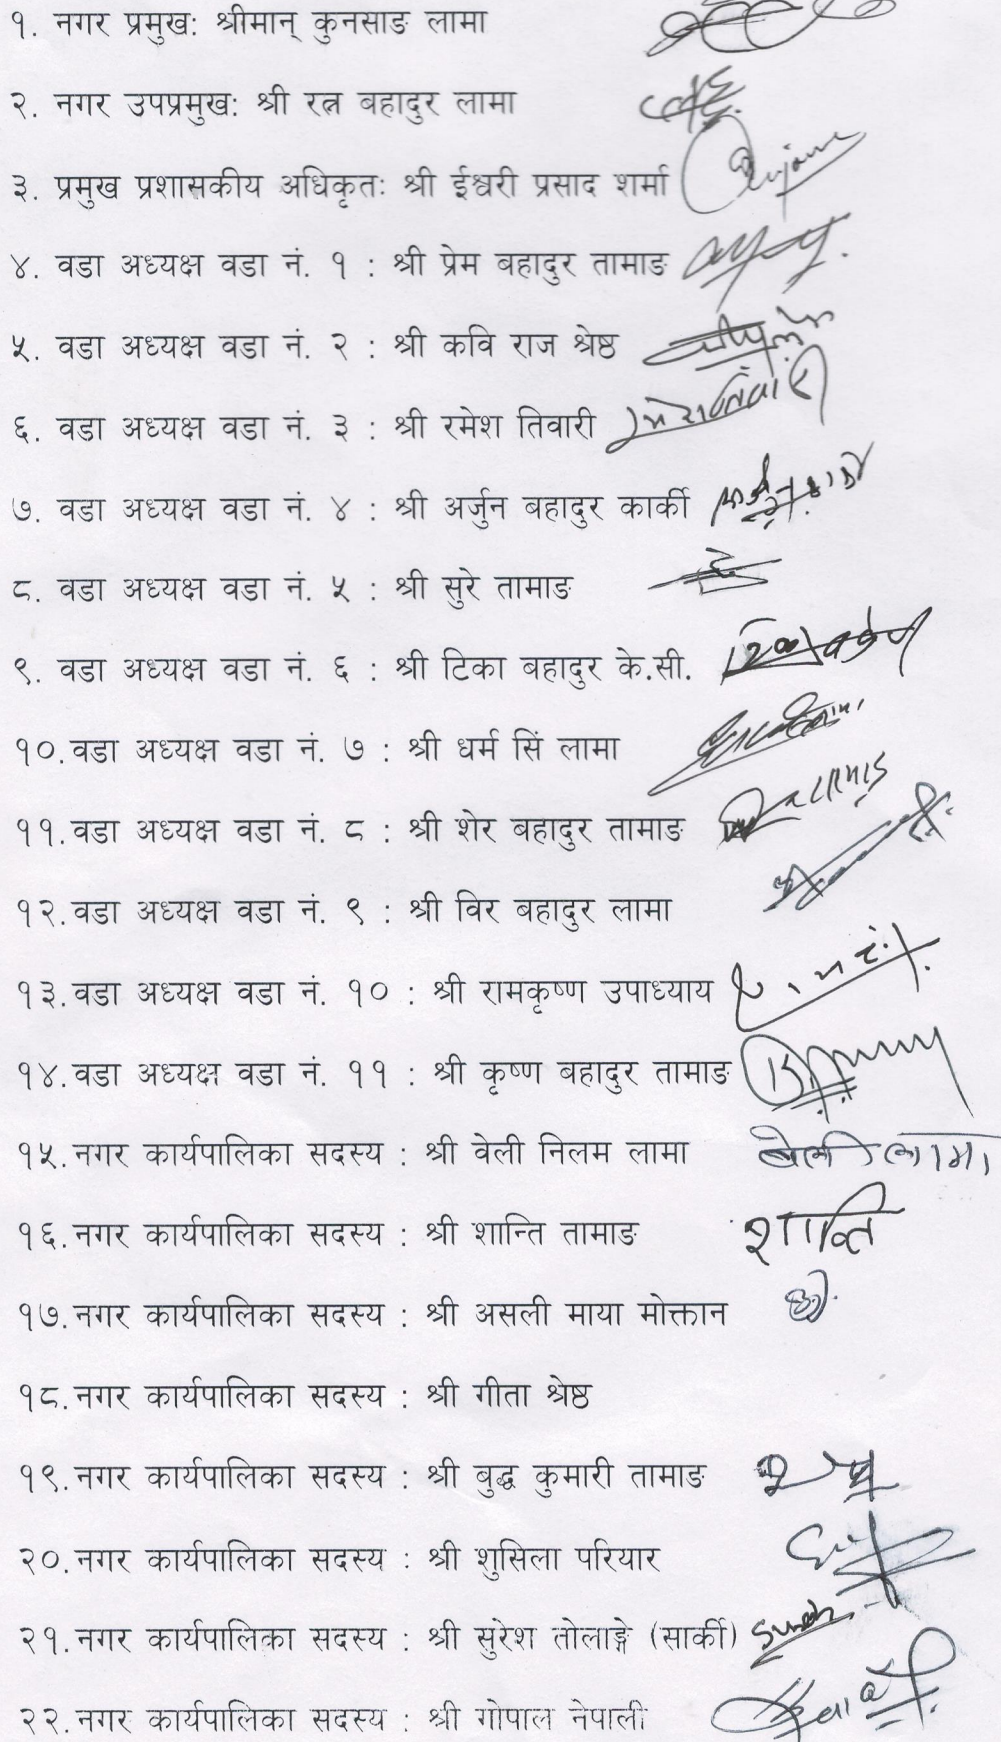 १. नगर प्रमुख: श्रीमान् कुनसाङ लामा
२. नगर उपप्रमुख: श्री रत्न बहादुर लामा
३. प्रमुख प्रशासकीय अधिकृतः श्री ईश्वरी प्रसाद शर्मा
४. वडा अध्यक्ष वडा नं. १ : श्री प्रेम बहादुर तामाङ
५. वडा अध्यक्ष वडा नं. २ : श्री कवि राज श्रेष्ठ
६. वडा अध्यक्ष वडा नं. ३ : श्री रमेश तिवारी
७. वडा अध्यक्ष वडा नं. ४ : श्री अर्जुन बहादुर कार्की
८. वडा अध्यक्ष वडा नं. ५ : श्री सुरे तामाङ
९. वडा अध्यक्ष वडा नं. ६ : श्री टिका बहादुर के.सी.
१०. वडा अध्यक्ष वडा नं. ७ : श्री धर्म सिं लामा
११. वडा अध्यक्ष वडा नं. ८ : श्री शेर बहादुर तामाङ
१२. वडा अध्यक्ष वडा नं. ९ : श्री विर बहादुर लामा
१३. वडा अध्यक्ष वडा नं. १० : श्री रामकृष्ण उपाध्याय
१४. वडा अध्यक्ष वडा नं. ११ : श्री कृष्ण बहादुर तामाङ
१५. नगर कार्यपालिका सदस्य : श्री वेली निलम लामा बेली लामा
१६. नगर कार्यपालिका सदस्य : श्री शान्ति तामाङ शान्ति
१७. नगर कार्यपालिका सदस्य : श्री असली माया मोक्तान
१८. नगर कार्यपालिका सदस्य : श्री गीता श्रेष्ठ
१९. नगर कार्यपालिका सदस्य : श्री बुद्ध कुमारी तामाङ
२०. नगर कार्यपालिका सदस्य : श्री शुसिला परियार
२१. नगर कार्यपालिका सदस्य : श्री सुरेश तोलाङ्गे (सार्की)
२२. नगर कार्यपालिका सदस्य : श्री गोपाल नेपाली